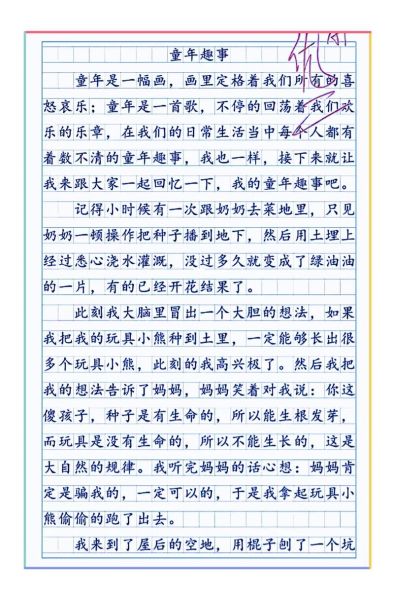 童年趣事
童年是一幅画，画里定格着我们所有的喜
怒哀乐；童年是一首歌，不停的回荡着我们欢
乐的乐章，在我们的日常生活当中每个人都有
着数不清的童年趣事，我也一样，接下来就让
我来跟大家一起回忆一下，我的童年趣事吧。
记得小时候有一次跟奶奶去菜地里，只见
奶奶一顿操作把种子播到地下，然后用土埋上
经过悉心浇水灌溉，没过多久就变成了绿油油
的一片，有的已经开花结果了。
此刻我大脑里冒出一个大胆的想法，如果
我把我的玩具小熊种到土里，一定能够长出很
多个玩具小熊，此刻的我高兴极了。然后我把
我的想法告诉了妈妈，妈妈笑着对我说：你这
傻孩子，种子是有生命的，所以能生根发芽，
而玩具是没有生命的，所以不能生长的，这是
大自然的规律。我听完妈妈的话心想：妈妈肯
定是骗我的，一定可以的，于是我拿起玩具小
熊偷偷的跑了出去。
我来到了屋后的空地，用棍子刨了一个坑